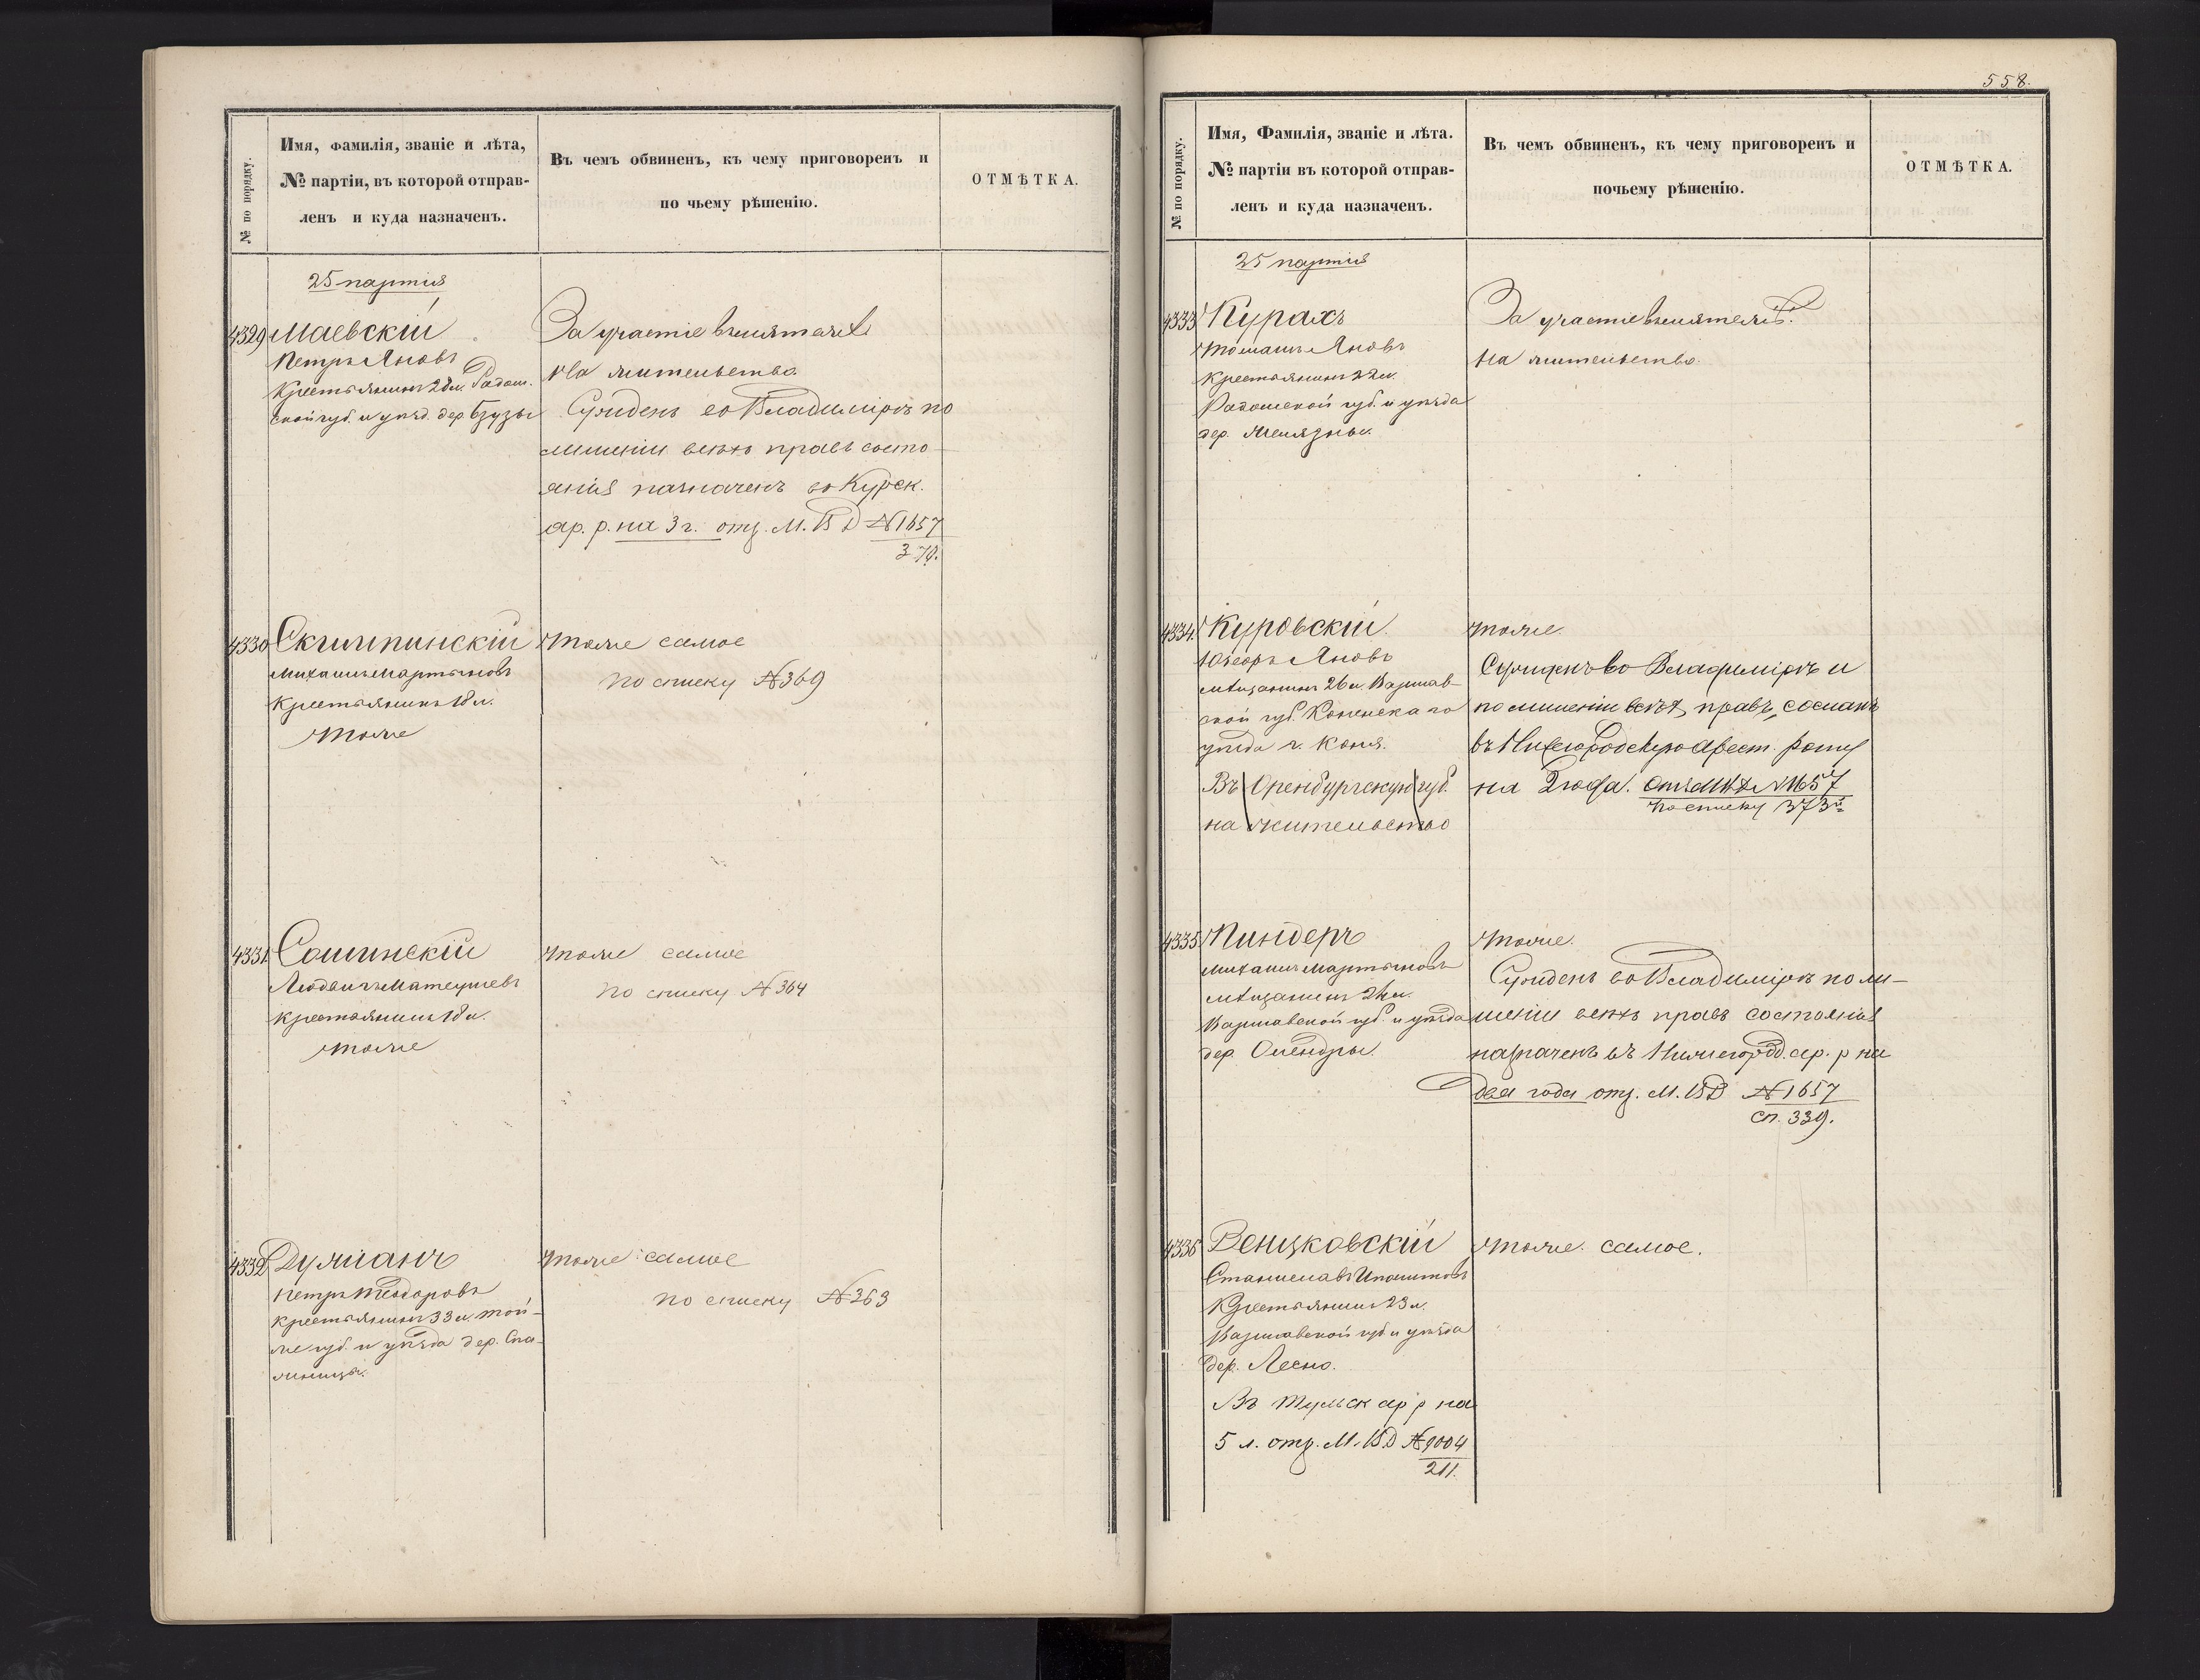 № по порядку.
Имя, Фамилія, званіе и лѣта,
№ партіи, въ которой отправ-
ленъ и куда назначенъ.
Въ чемъ обвиненъ, къ чему приговоренъ и
по чьему рѣшенію.
ОТМѢТКА.
25 партія
4329 Маевскій
Петръ Яновъ
Крестьянинъ 28 л. Радом.
ской губ. и уѣзд. дер. Бзузы
За участіе въ мятежѣ
На жительство.
Сужденъ во Владимірѣ по
лишеніи всѣхъ правъ состо-
янія назначенъ въ Курск.
ар. р. на 3 г. отз. М. В Д №1657
370.
4330 Скжипинскій
Михаилъ Мартыновъ
Крестьянинъ 18 л.
тоже
тоже самое
по списку №369
4331 Сошинскій
Людвигъ Матеушевъ
Крестьянинъ 18 л.
тоже
тоже самое
по списку №364
4332
Петръ Теодоровъ
Крестьянинъ 33 л. той-
же губ. и уѣзда дер.
тоже самое
по списку №363
558.
№ по порядку.
Имя, Фамилія, званіе и лѣта.
№ партіи въ которой отправ-
ленъ и куда назначенъ.
Въ чемъ обвиненъ, къ чему приговоренъ и
почьему рѣшенію.
ОТМѢТКА.
25 партія
4333 Курахъ
Томашъ Яновъ
Крестьянинъ 22 л.
Радомской губ. и уѣзда
дер.
За участіе въ мятежѣ.
На жительство.
4334. Куровскій.
Юзефъ Яновъ
мѣщанинъ 26 л. Варшав-
ской губ. Конинскаго
уѣзда г. Коня.
Въ Оренбургскую губ.
на жительство
тоже.
Сужденъ во Владимірѣ и
по лишеніи всѣхъ правъ, сосланъ
въ Нижегородскую арест. роту
на 2 года. Отз МВД №1657
по списку 373й
4335 Пиндеръ
Михаилъ Мартыновъ
мѣщанинъ 24 л.
Варшавской губ. и уѣзда
дер. Олендры.
тоже.
Сужденъ во Владимірѣ по ли-
шеніи всѣхъ правъ состоянія
назначенъ въ Нижегород. ар. р на
два года отз. М. ВД №1657
сп. 339.
4336 Венцковскій
Станиславъ Иполитовъ
Крестьянинъ 23 л.
Варшавской губ и уѣзда
дер. Лесно.
Въ Тульск ар р на
5 л. отз. М. ВД №9004
211.
тоже самое.